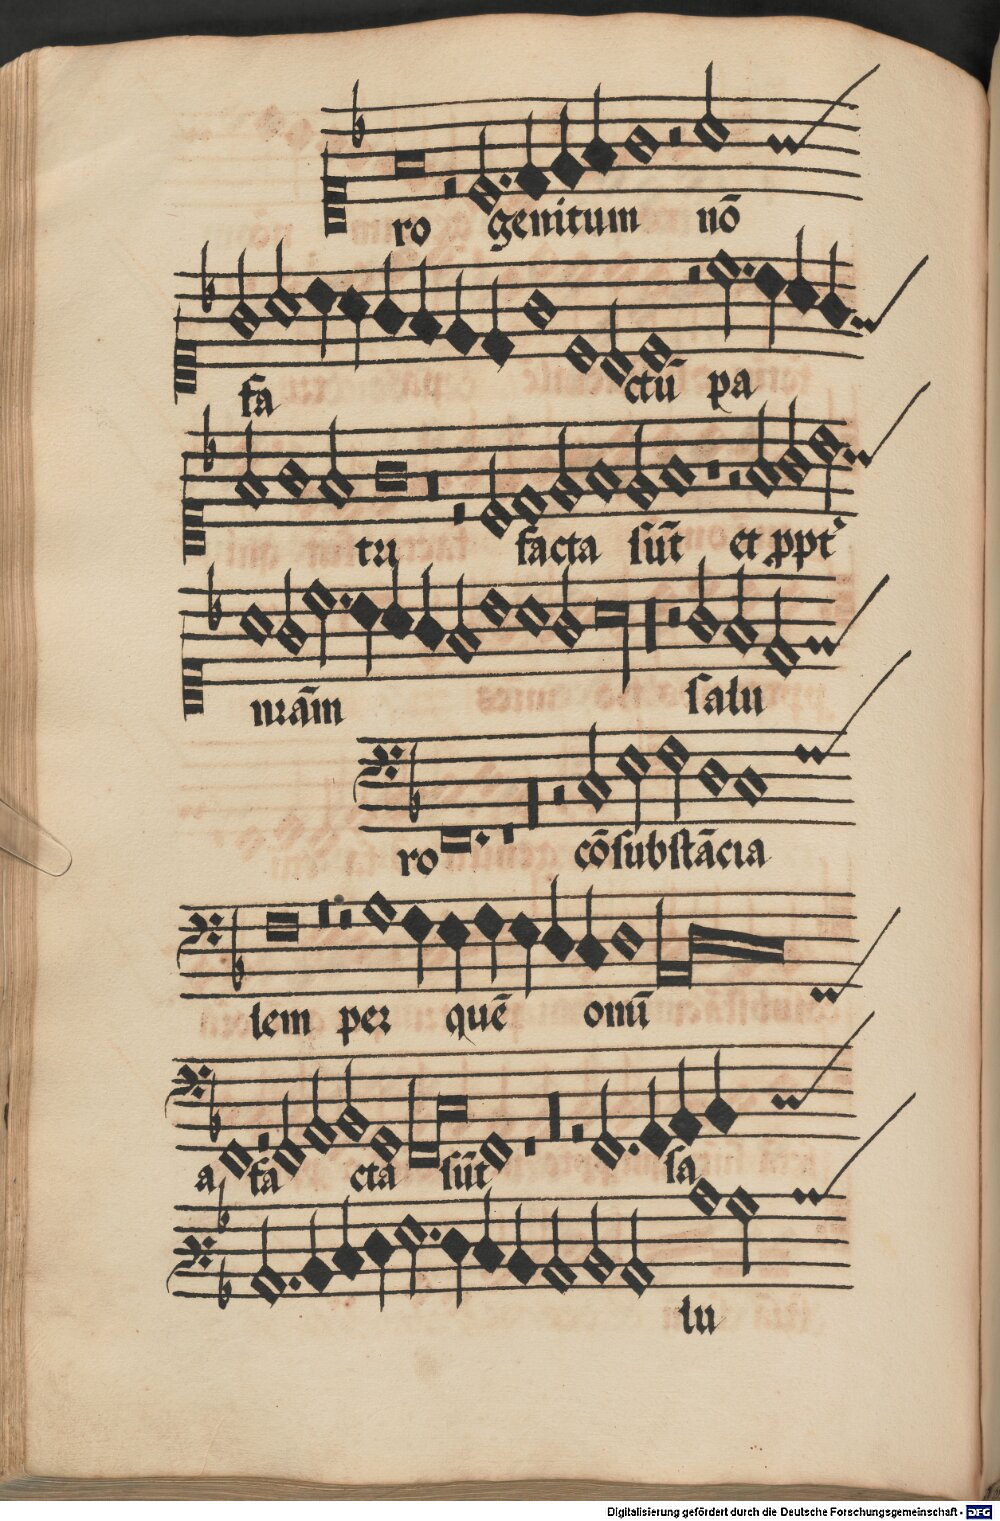 ro genitum nō
fa ctū pa
tri facta sūt et ppt
nrām salu
ro cōsubstācia
lem per quē omī
a fa cta sūt sa
lu
Digitalisierung gefördert durch die Deutsche Forschungsgemeinschaft - DFG